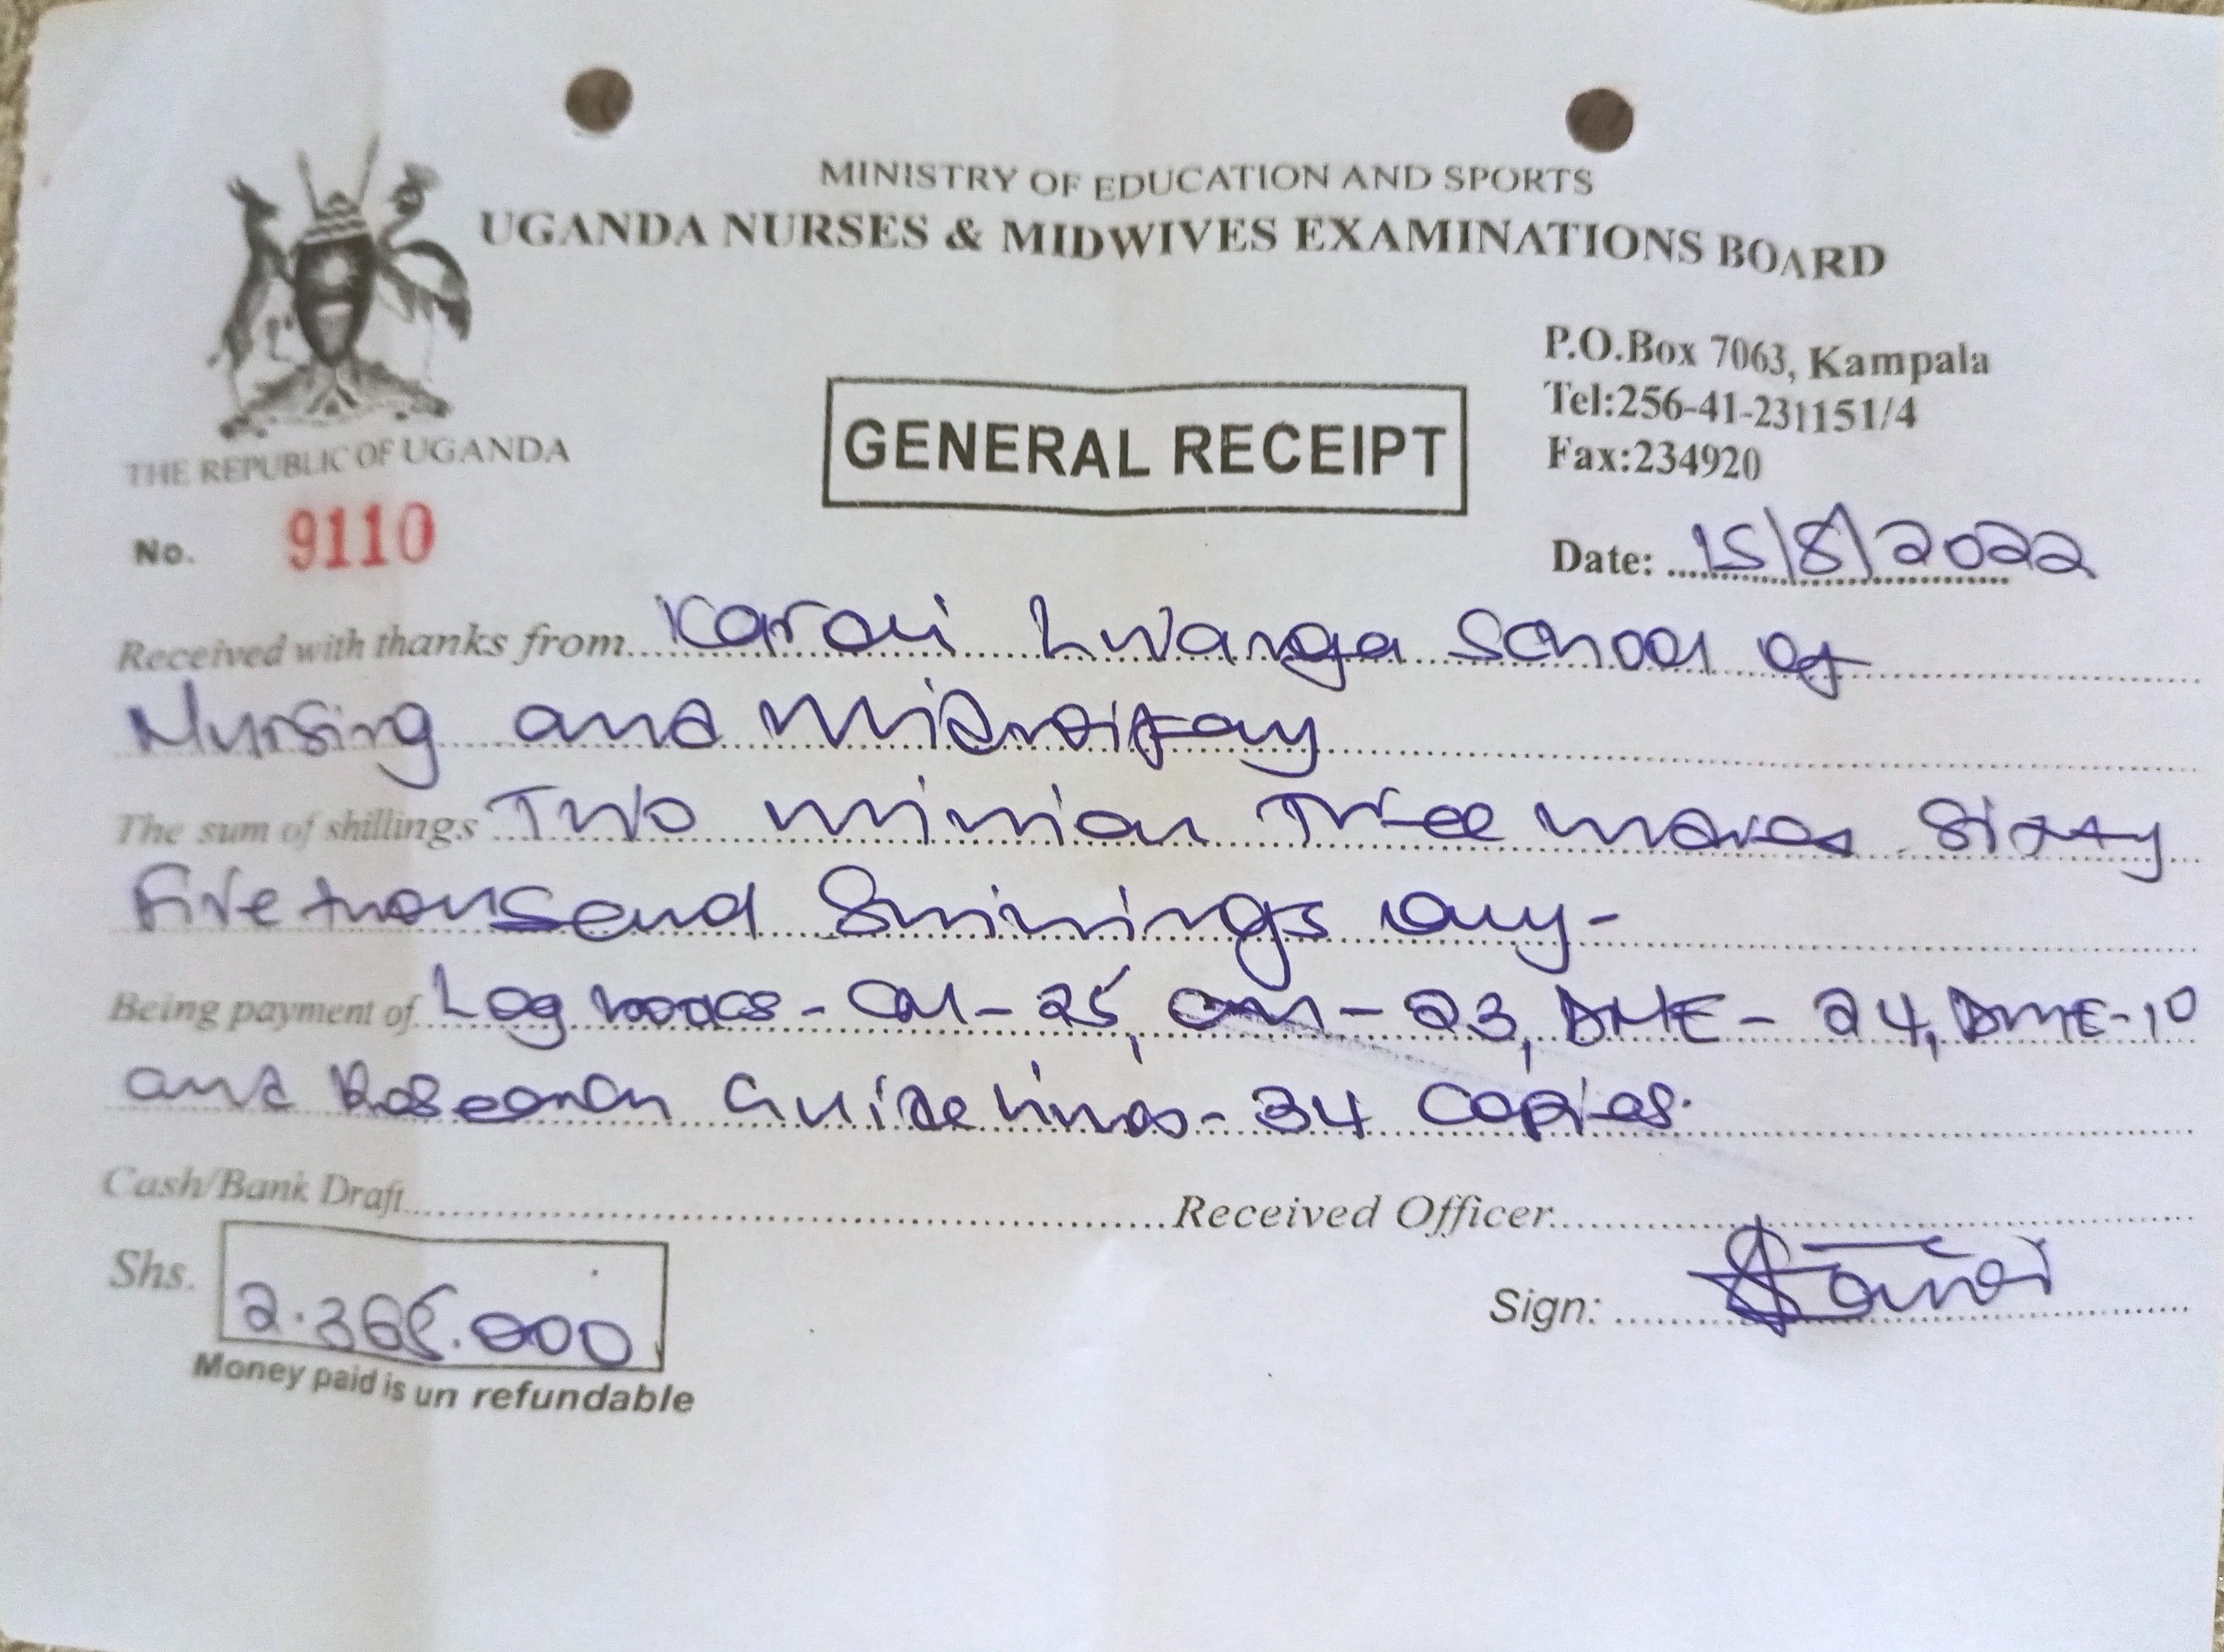 MINISTRY OF EDUCATION AND SPORTS
UGANDA NURSES & MIDWIVES EXAMINATIONS BOARD
P.O.Box 7063, Kampala
Tel:256-41-231151/4
Fax:234920
GENERAL RECEIPT
THE REPUBLIC OF UGANDA
No. 9110
Date: 15/8/2022
Received with thanks from Karoli Lwanga School of
Nursing and Midwifery
The sum of shillings Two million Three hundred Sixty
Five thousand Shillings only-
Being payment of Log books - CM - 25, CN - 23, DNE - 24, DME - 10
and Research Guidelines - 34 copies.
Cash/Bank Draft
Received Officer
Shs. 2.365.000
Sign:
Money paid is un refundable